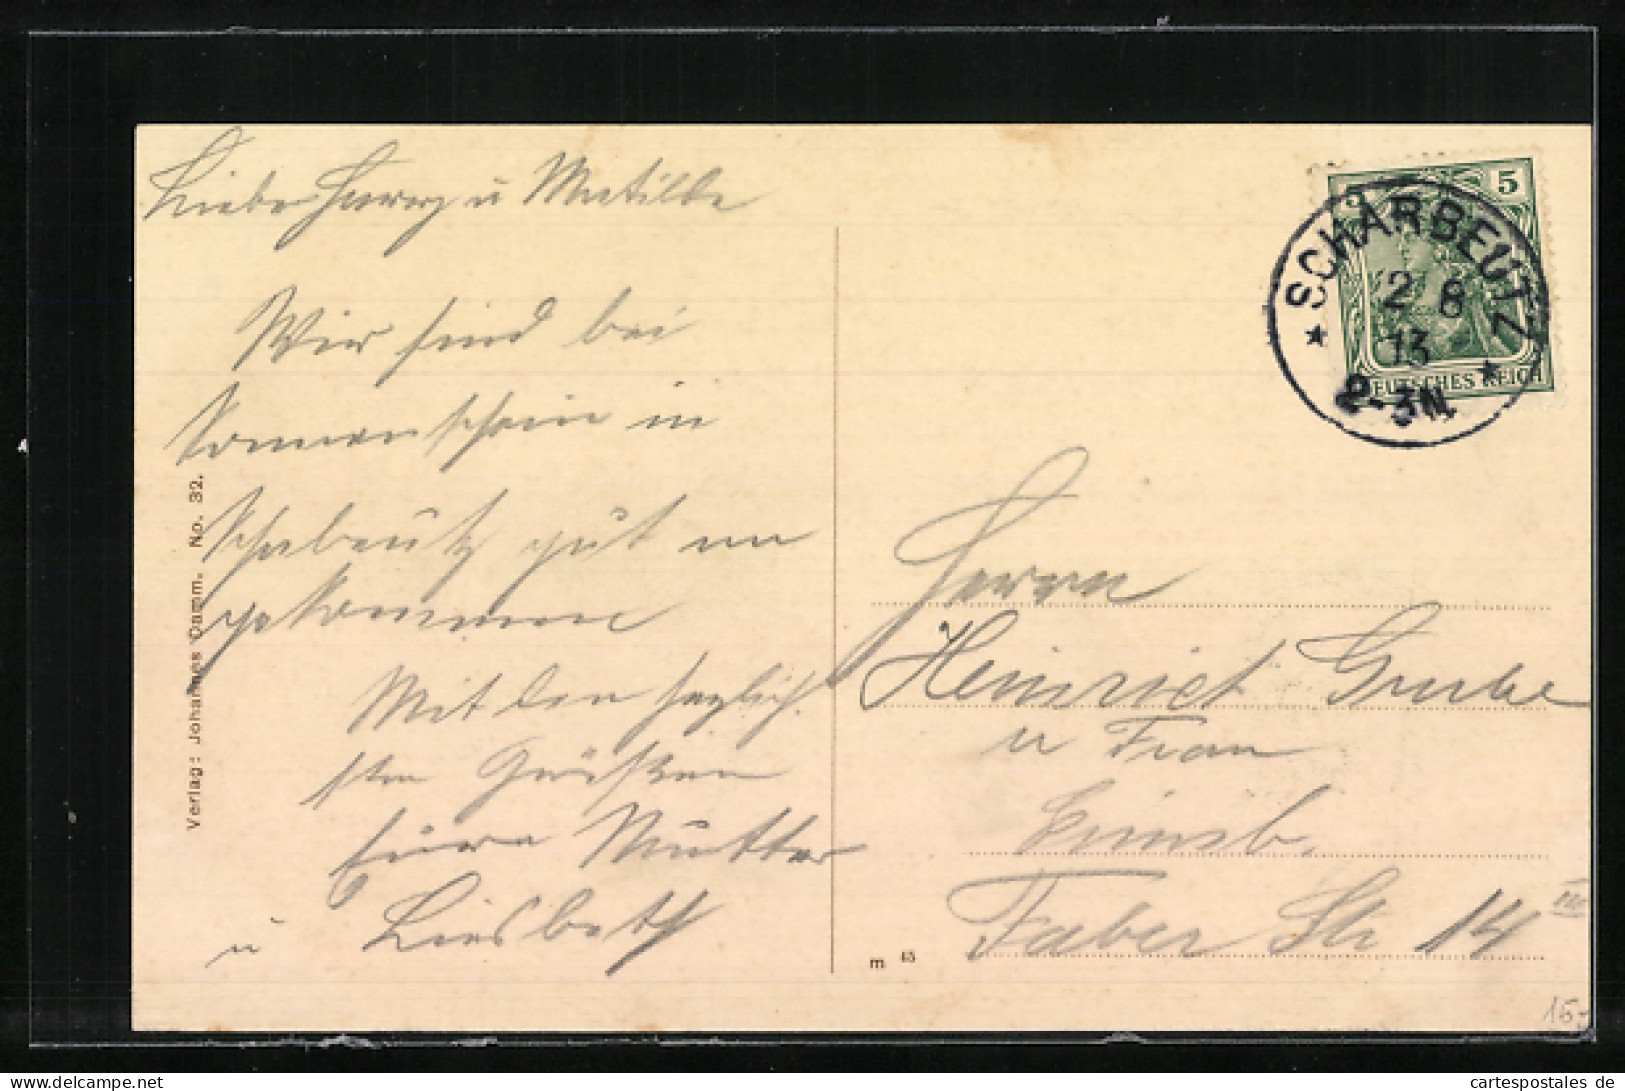 Liebe Harry u Matilde
Wir sind bei
Sonnenschein in
Schabeutz gut an
gekommen
Mit den herzlich
sten Grüßen
Eure Mutter
u Liesbeth
Verlag: Johannes Damm. No. 32.
5 5
DEUTSCHES REICH
SCHARBEUTZ
2 8
13
2-3N.
Herrn
Heinrich Grube
u Frau
Faber Str 14 III
m 45
15-
cartespostales de